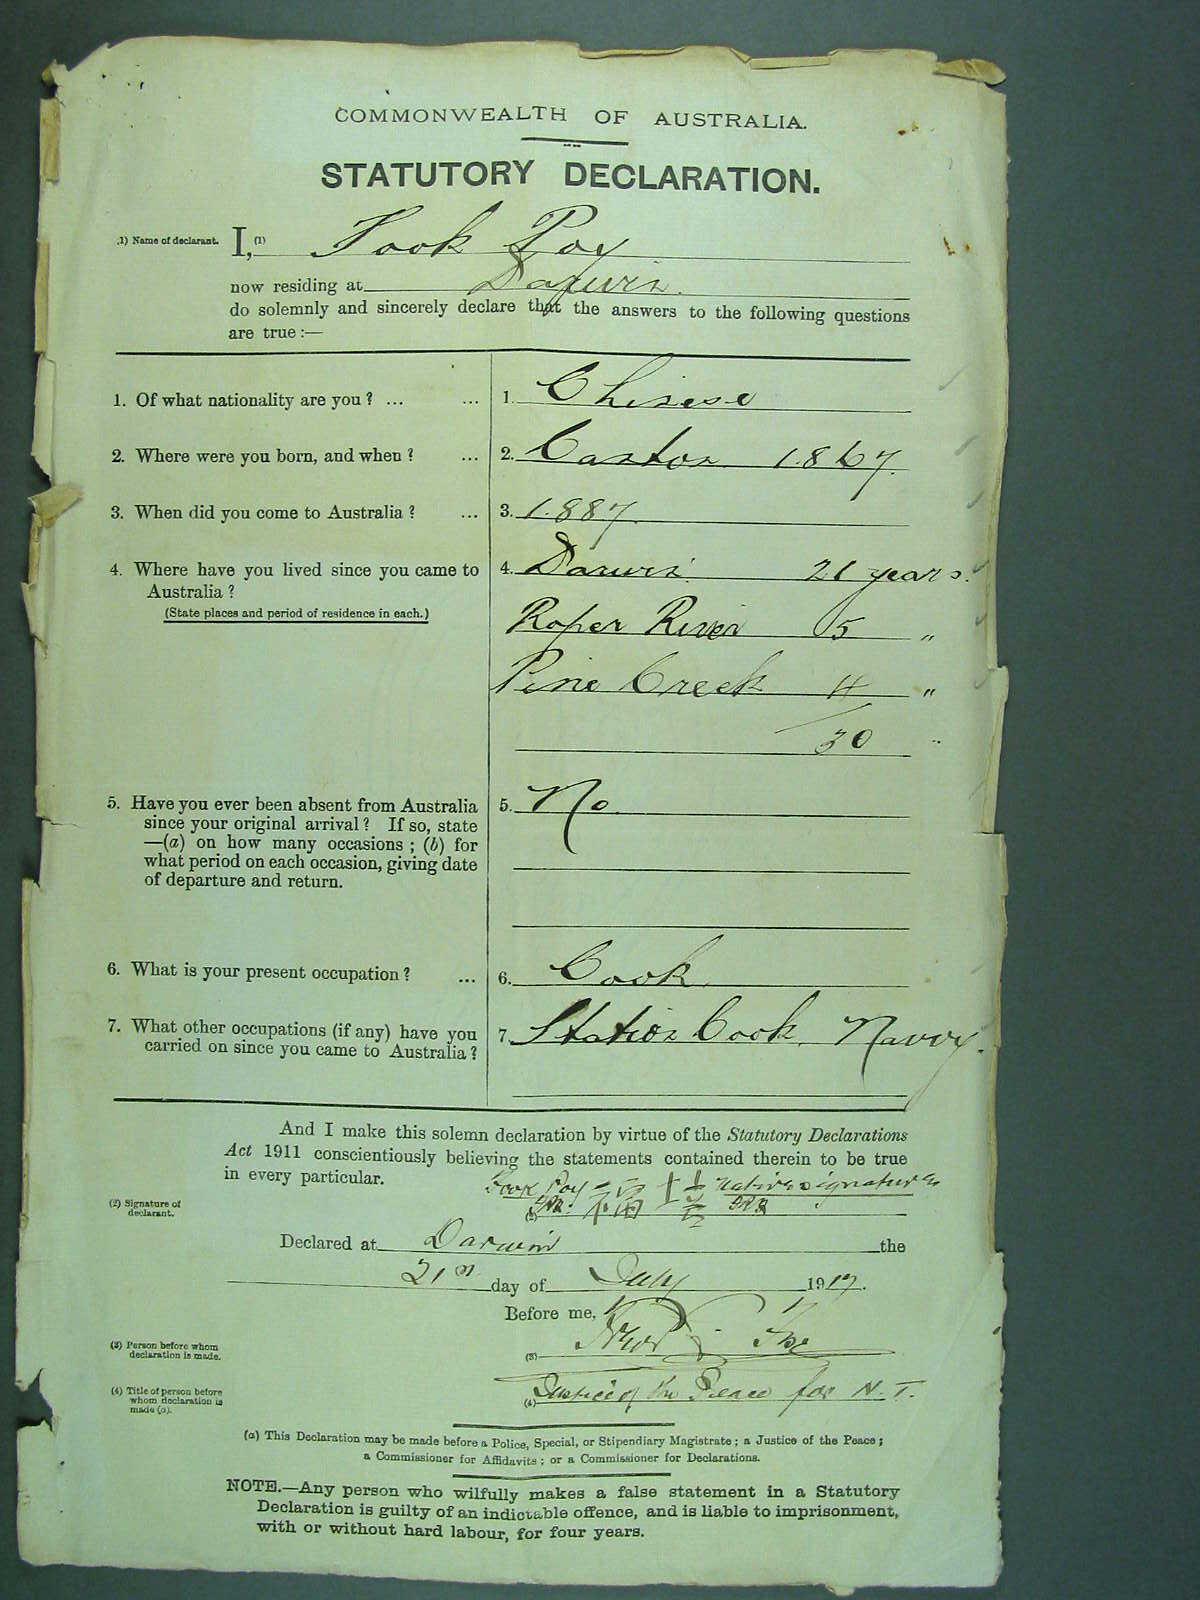 COMMONWEALTH OF AUSTRALIA.
STATUTORY DECLARATION.
(1) Name of declarant. I, (1) Fook Poy
now residing at Darwin.
do solemnly and sincerely declare that the answers to the following questions
are true :—
1. Of what nationality are you ? ... ... 1. Chinese
2. Where were you born, and when ? ... 2. Canton 1867.
3. When did you come to Australia ? ... 3. 1887.
4. Where have you lived since you came to 4. Darwin. 21 years.
Australia ?
(State places and period of residence in each.)
Roper River 5 "
Pine Creek 4 "
30 "
5. Have you ever been absent from Australia 5. No.
since your original arrival ? If so, state
—(a) on how many occasions ; (b) for
what period on each occasion, giving date
of departure and return.
6. What is your present occupation ? ... 6. Cook.
7. What other occupations (if any) have you 7. Station Cook. Navvy.
carried on since you came to Australia ?
And I make this solemn declaration by virtue of the Statutory Declarations
Act 1911 conscientiously believing the statements contained therein to be true
in every particular.
Fook Poy native signature
(2) Signature of
declarant. (2)
Declared at Darwin the
21st day of July 1917.
Before me,
(3) Person before whom
declaration is made. (3)
(4) Title of person before
whom declaration is
made (a). (4) Justice of the Peace for N. T.
(a) This Declaration may be made before a Police, Special, or Stipendiary Magistrate ; a Justice of the Peace ;
a Commissioner for Affidavits ; or a Commissioner for Declarations.
NOTE.—Any person who wilfully makes a false statement in a Statutory
Declaration is guilty of an indictable offence, and is liable to imprisonment,
with or without hard labour, for four years.